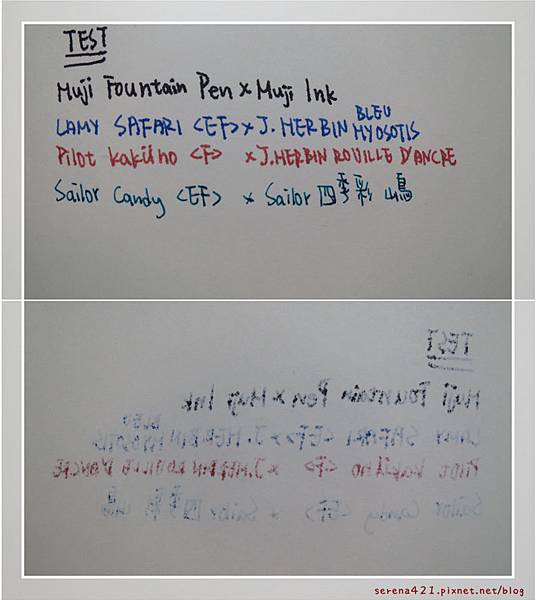 TEST
Muji Fountain Pen x Muji Ink
LAMY SAFARI <EF> x J. HERBIN BLEU MYOSOTIS
Pilot kakülno <F> x J. HERBIN ROUILLE D'ANCRE
Sailor Candy <EF> x Sailor 四季彩 山鳥
TEST
Muji Fountain Pen x Muji Ink
LAMY SAFARI <EF> x J. HERBIN BLEU MYOSOTIS
Pilot kakülno <F> x J. HERBIN ROUILLE D'ANCRE
Sailor Candy <EF> x Sailor 四季彩 山鳥
serena421.pixnet.net/blog